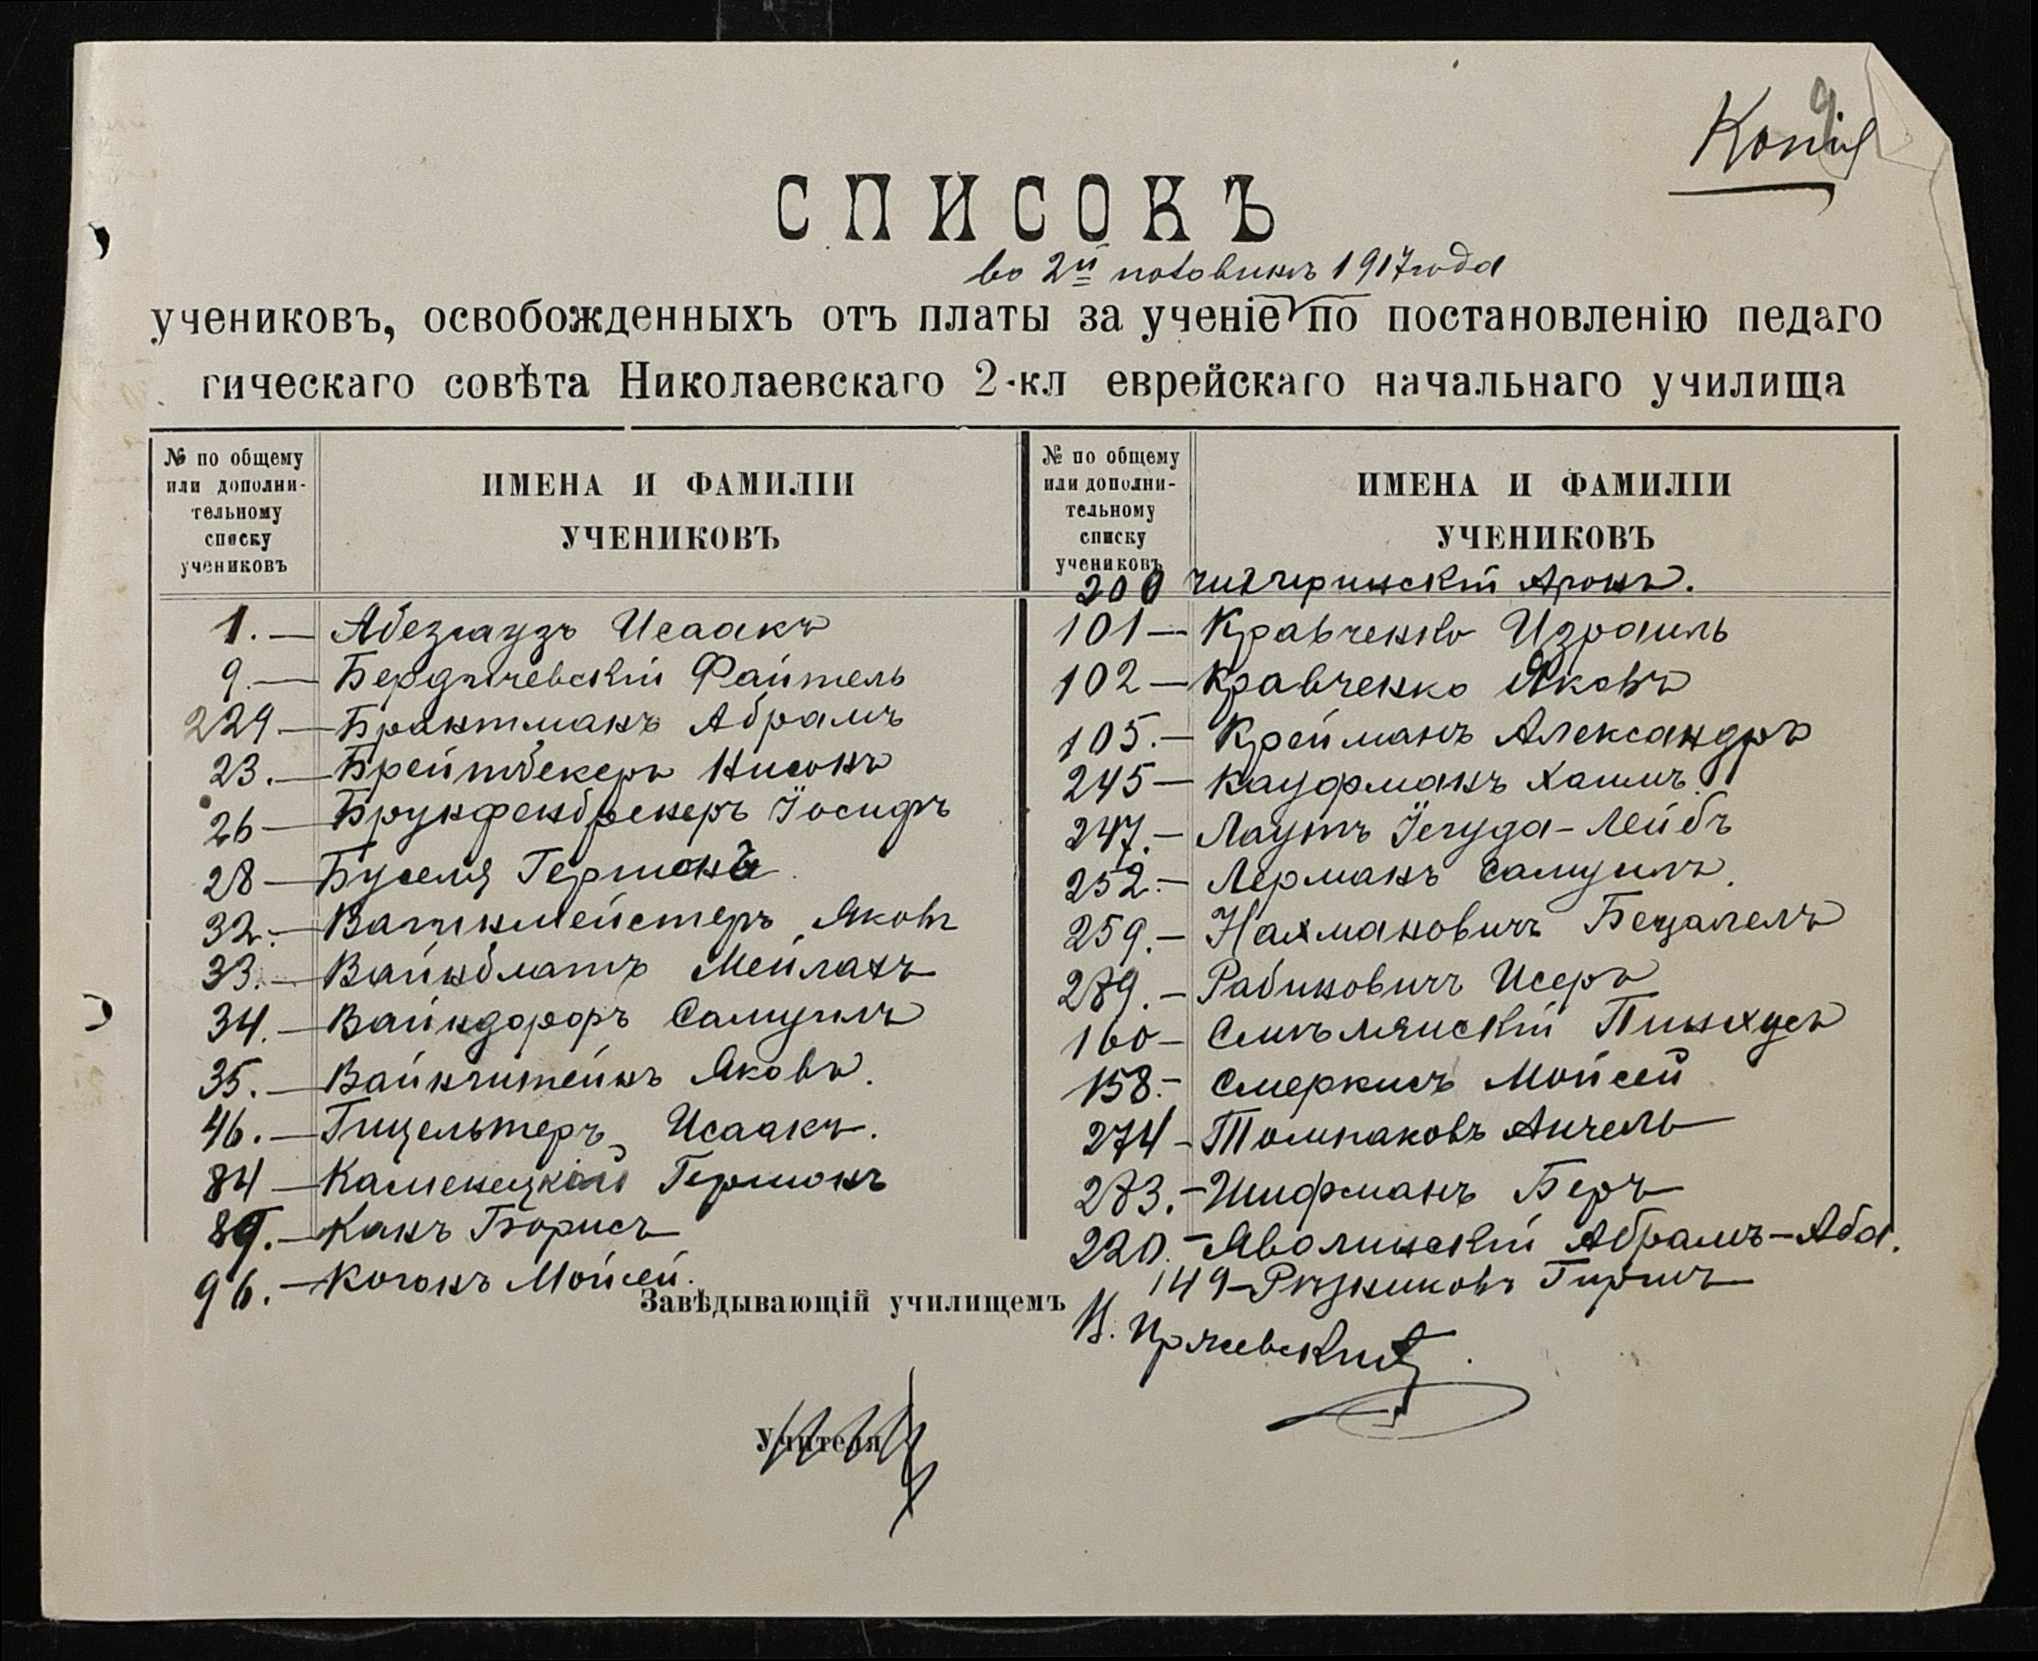 9
Копія
СПИСОКЪ
во 2й половинѣ 1917 года
учениковъ, освобожденныхъ отъ платы за ученіе по постановленію педаго
гическаго совѣта Николаевскаго 2-кл еврейскаго начальнаго училища
№ по общему
или дополни-
тельному
списку
учениковъ
ИМЕНА И ФАМИЛІИ
УЧЕНИКОВЪ
1. — Абезгаузъ Исаакъ
9. — Бердичевскій Файтель
229. — Брантманъ Абрамъ
23. — Брейтбекеръ Нисонъ
26 — Брунфенбренеръ Іосифъ
28 — Буселя Гершонъ
32. — Вагшмейстеръ Яковъ
33. — Вайнблатъ Мейлахъ
34. — Вайндорфъ Самуилъ
35. — Вайнштейнъ Яковъ.
46. — Гицельтеръ Исаакъ.
84 — Каменецкій Гершонъ
89. — Канъ Борисъ
96. — Коганъ Мойсей.
№ по общему
или дополни-
тельному
списку
учениковъ
ИМЕНА И ФАМИЛІИ
УЧЕНИКОВЪ
200 Чигиринскій Аронъ.
101 — Кравченко Израиль
102 — Кравченко Яковъ
105. — Крейманъ Александръ
245 — Кауфманъ Хаимъ.
247. — Лаутъ Іегуда-Лейбъ
252. — Лерманъ Самуилъ.
259. — Нахмановичъ Бецалелъ
289. — Рабиновичъ Исеръ
160 — Пинхусъ
158. — Смеркисъ Мойсей
274 — Толмаковъ Анчель
283. — Шифманъ Беръ
220. — Яволинскій Абрамъ-Аба.
149 — Рѣзниковъ Гиршъ
Завѣдывающій училищемъ
Учителя